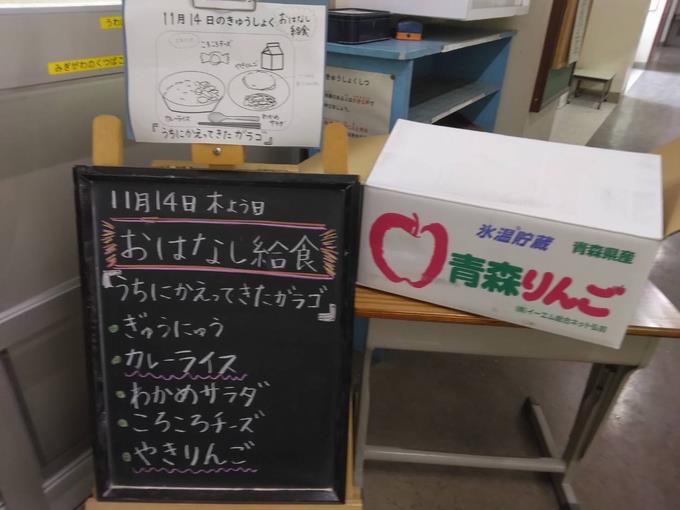 うわ
みぎがわのくつばこ
11月14日のきゅうしょく おはなし
給食
ころころチーズ
やきりんご
カレーライス
わかめ
サラダ
『うちにかえってきたガラゴ』
11月14日 木よう日
おはなし給食
『うちにかえってきたガラゴ』
ぎゅうにゅう
カレーライス
わかめサラダ
ころころチーズ
やきりんご
氷温貯蔵
青森県産
青森りんご
(株)イーエム総合ネット弘前